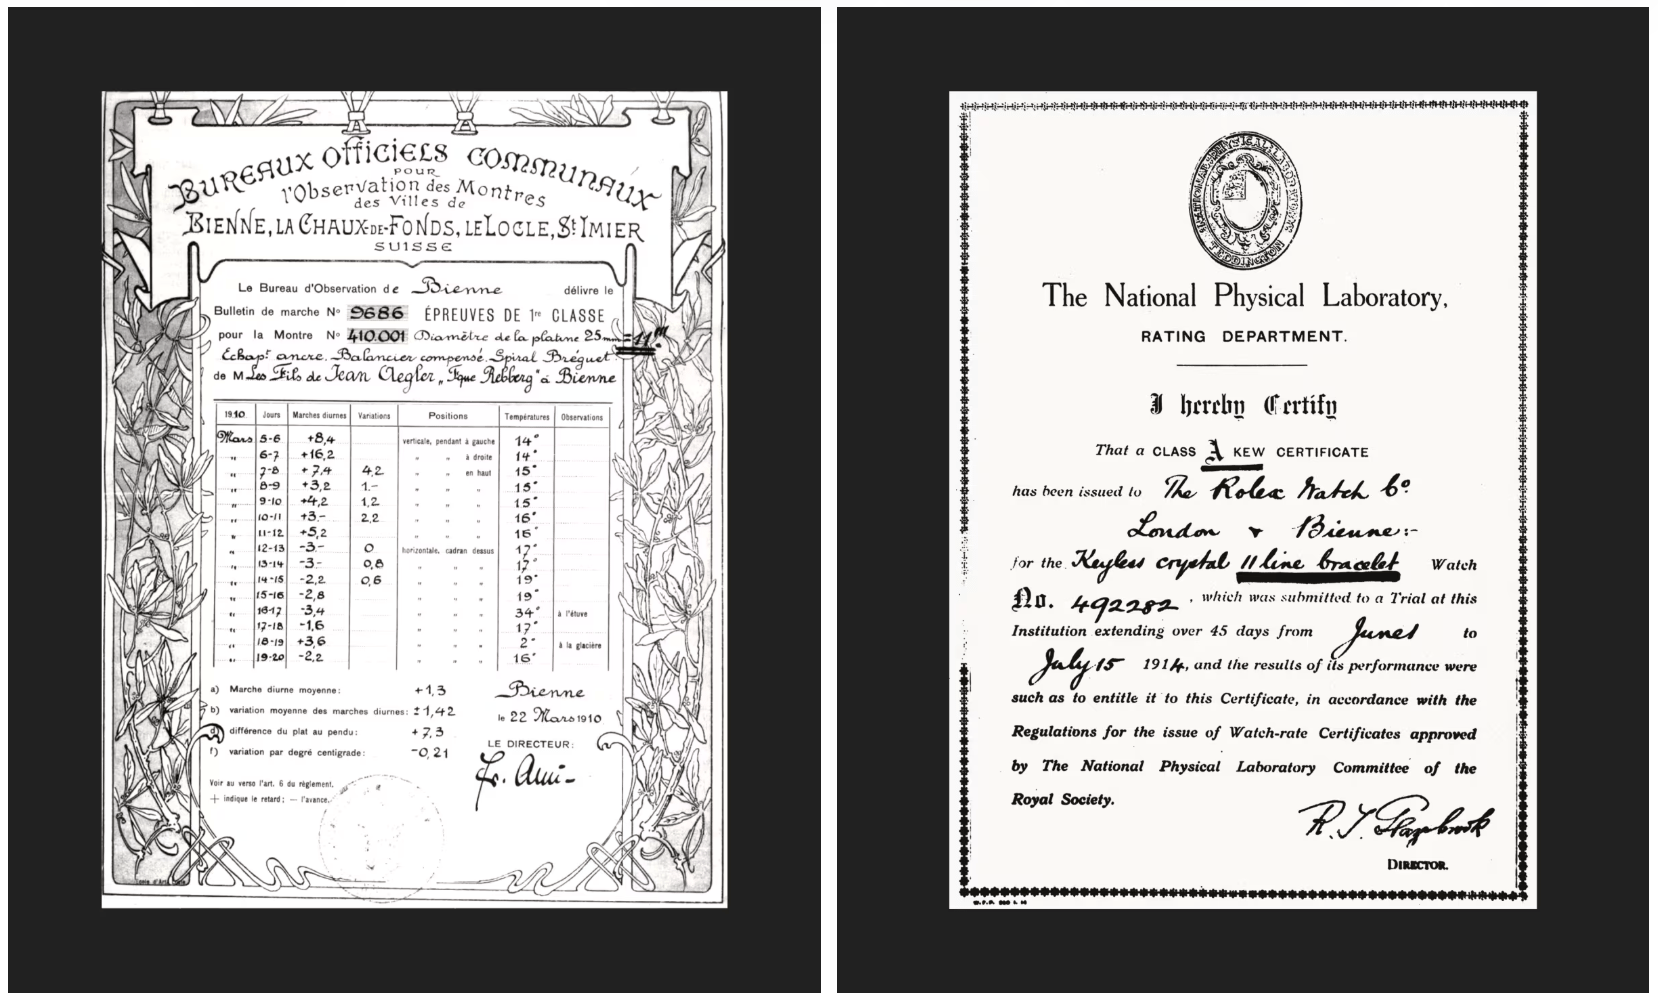 BUREAUX OFFICIELS COMMUNAUX
POUR
l'Observation des Montres
des Villes de
BIENNE, LA CHAUX-DE-FONDS, LE LOCLE, St IMIER
SUISSE
Le Bureau d'Observation de Bienne délivre le
Bulletin de marche No 9686 ÉPREUVES DE 1re CLASSE
pour la Montre No 410.001 Diamètre de la platine 25mm = 11'''
Echapt ancre. Balancier compensé. Spiral Bréguet.
de M Les Fils de Jean Aegler „Fque Rebberg" à Bienne
1910. Jours Marches diurnes Variations Positions Températures Observations
Mars 5-6 +8,4 verticale, pendant à gauche 14°
„ 6-7 +16,2 „ „ à droite 14°
„ 7-8 +7,4 4,2 „ „ en haut 15°
„ 8-9 +3,2 1.- „ „ „ 15°
„ 9-10 +4,2 1,2 „ „ „ 15°
„ 10-11 +3.- 2,2 „ „ „ 16°
„ 11-12 +5,2 „ „ „ 16°
„ 12-13 -3.- 0 horizontale, cadran dessus 17°
„ 13-14 -3.- 0,8 „ „ „ 17°
„ 14-15 -2,2 0,6 „ „ „ 19°
„ 15-16 -2,8 „ „ „ 19°
„ 16-17 -3,4 „ „ „ 34° à l'étuve
„ 17-18 -1,6 „ „ „ 17°
„ 18-19 +3,6 „ „ „ 2° à la glacière
„ 19-20 -2,2 „ „ „ 16°
a) Marche diurne moyenne: +1,3
b) variation moyenne des marches diurnes: ±1,42
d) différence du plat au pendu: +7,3
f) variation par degré centigrade: -0,21
Bienne
le 22 Mars 1910
LE DIRECTEUR:
Voir au verso l'art. 6 du règlement.
+ indique le retard; — l'avance.
NATIONAL PHYSICAL LABORATORY
TEDDINGTON
The National Physical Laboratory,
RATING DEPARTMENT.
I hereby Certify
That a CLASS A KEW CERTIFICATE
has been issued to The Rolex Watch Co.
London & Bienne:-
for the Keyless crystal 11 line bracelet Watch
No. 492282, which was submitted to a Trial at this
Institution extending over 45 days from June 1 to
July 15 1914, and the results of its performance were
such as to entitle it to this Certificate, in accordance with the
Regulations for the issue of Watch-rate Certificates approved
by The National Physical Laboratory Committee of the
Royal Society.
R. T. Glazebrook
DIRECTOR.